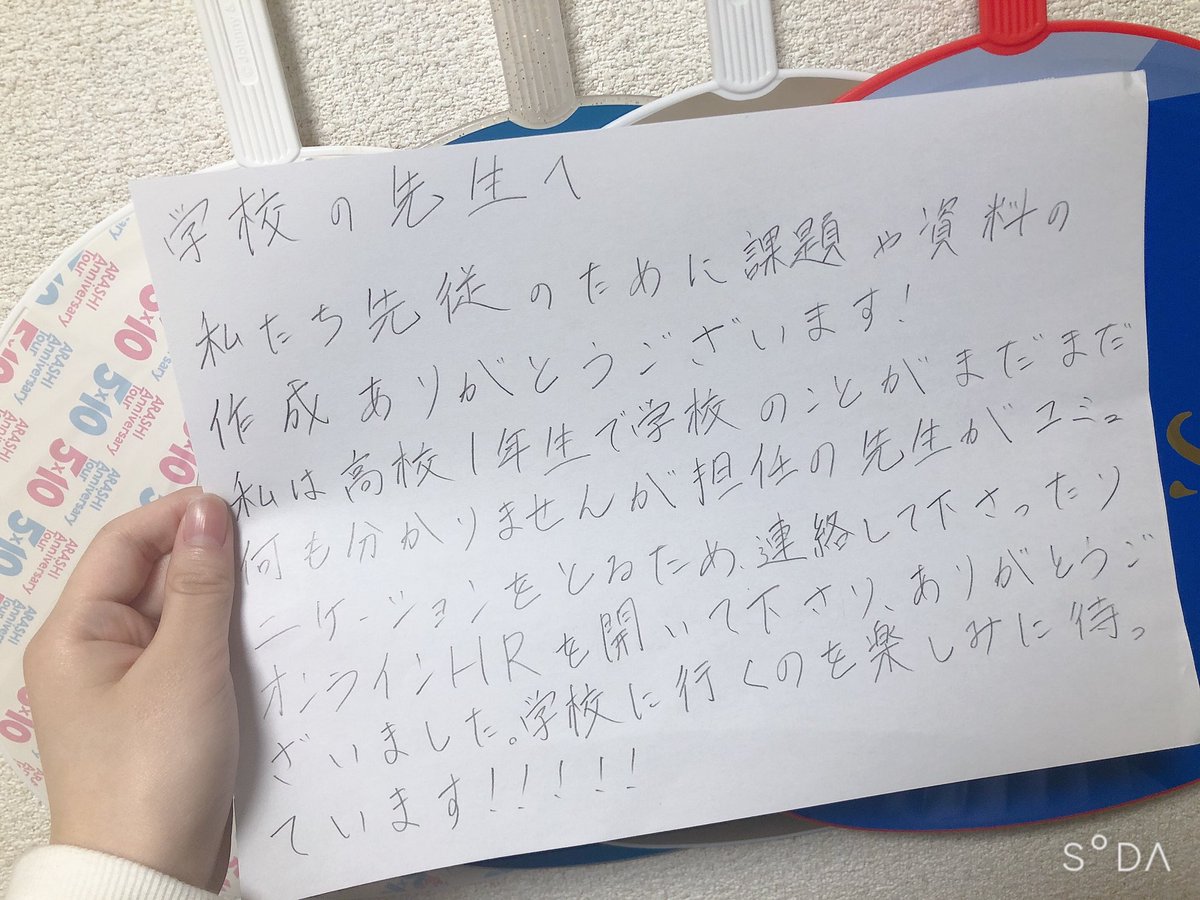 学校の先生へ
私たち先従のために課題や資料の
作成ありがとうございます!
私は高校1年生で学校のことがまだまだ
何も分かりませんが担任の先生がコミュ
ニケーションをとるため、連絡して下さったり
オンラインHRを開いて下さり、ありがとうご
ざいました。学校に行くのを楽しみに待っ
ています!!!!!
ARASHI
Anniversary
Tour
5×10
ARASHI
Anniversary
Tour
5×10
ARASHI
Anniversary
Tour
5×10
SODA